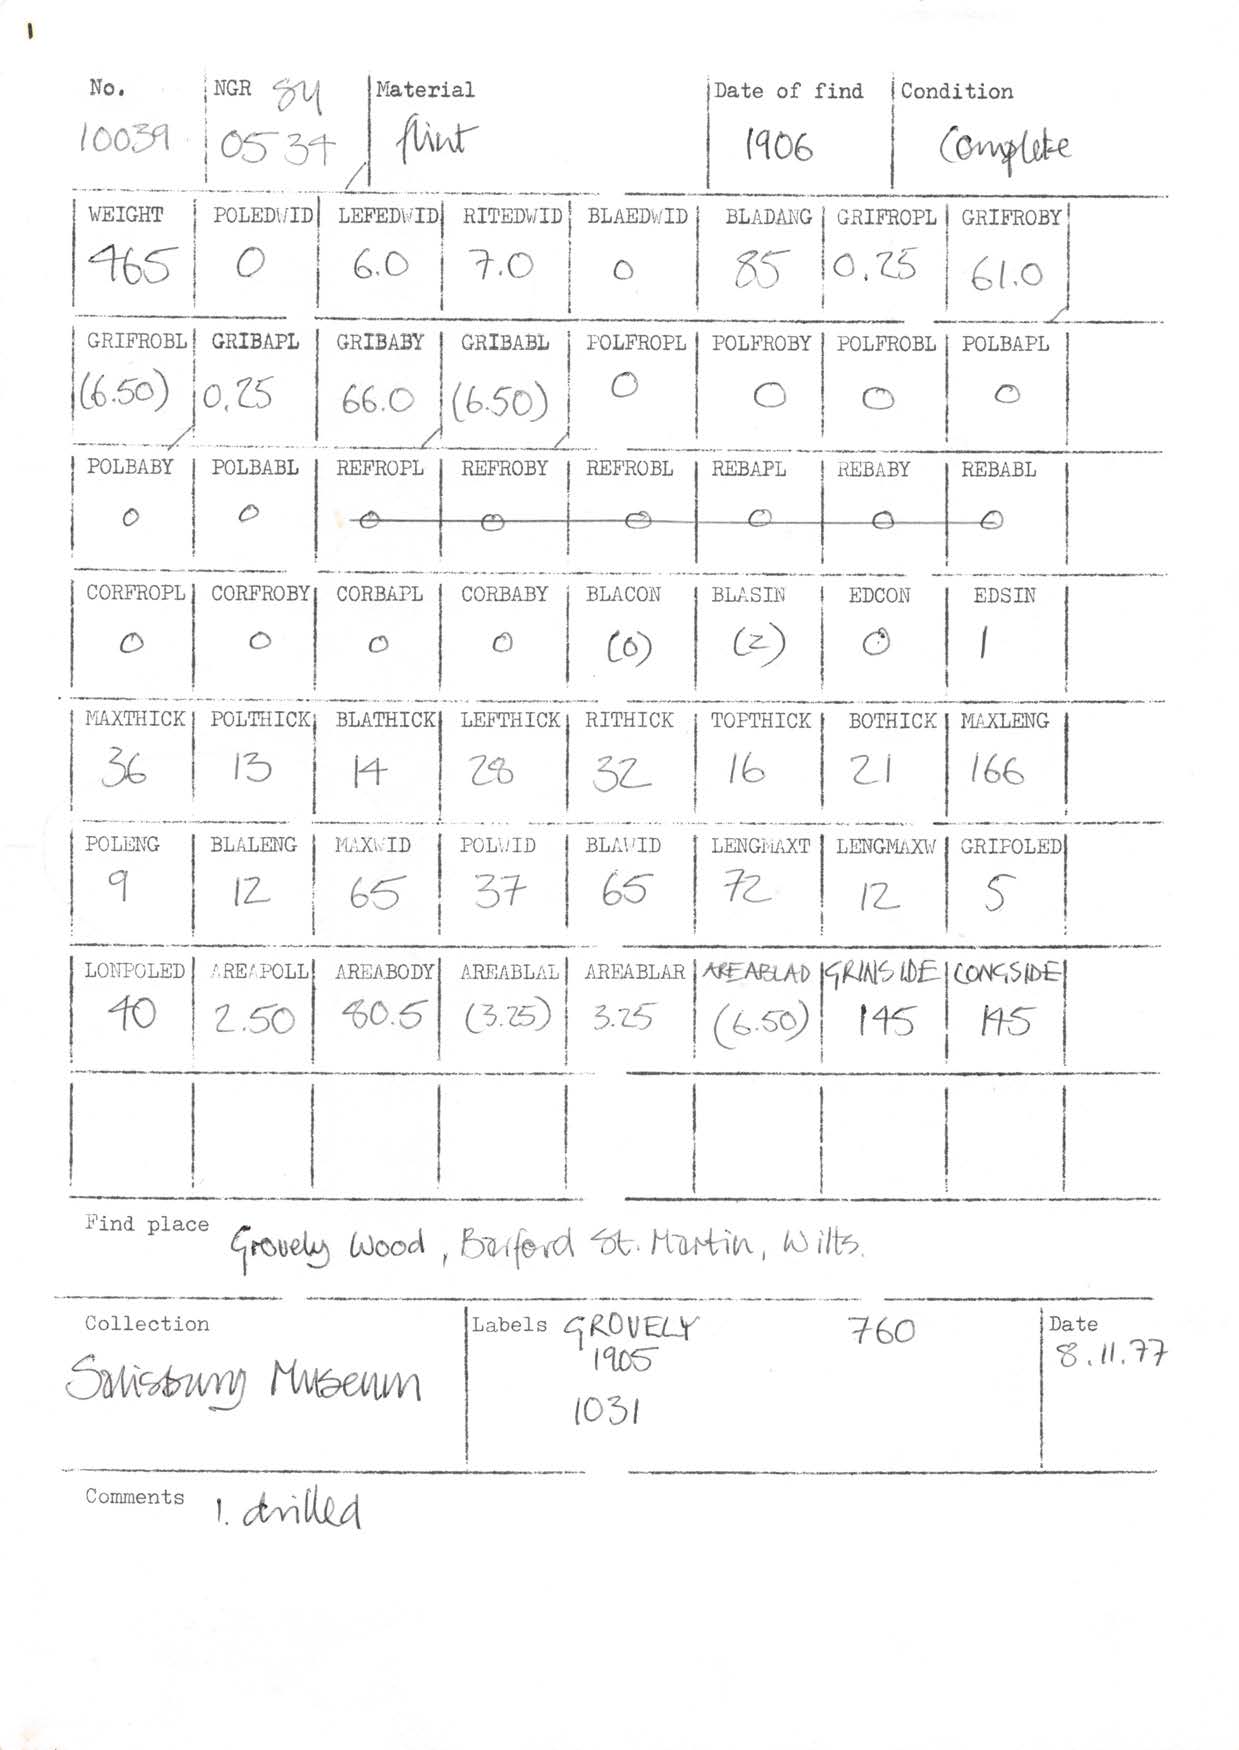 1
No. NGR SU Material Date of find Condition
10039 05 34 flint 1906 Complete
WEIGHT POLEDWID LEFEDWID RITEDWID BLAEDWID BLADANG GRIFROPL GRIFROBY
465 0 6.0 7.0 0 85 0.25 61.0
GRIFROBL GRIBAPL GRIBABY GRIBABL POLFROPL POLFROBY POLFROBL POLBAPL
(6.50) 0.25 66.0 (6.50) 0 0 0 0
POLBABY POLBABL REFROPL REFROBY REFROBL REBAPL REBABY REBABL
0 0 0 0 0 0 0 0
CORFROPL CORFROBY CORBAPL CORBABY BLACON BLASIN EDCON EDSIN
0 0 0 0 (0) (2) 0 1
MAXTHICK POLTHICK BLATHICK LEFTHICK RITHICK TOPTHICK BOTHICK MAXLENG
36 13 14 28 32 16 21 166
POLENG BLALENG MAXWID POLWID BLAWID LENGMAXT LENGMAXW GRIPOLED
9 12 65 37 65 72 12 5
LONPOLED AREAPOLL AREABODY AREABLAL AREABLAR AREABLAD GRINSIDE CONGSIDE
40 2.50 80.5 (3.25) 3.25 (6.50) 145 145
Find place Grovely Wood, Barford St. Martin, Wilts.
Collection Labels GROVELY 760 Date
1905 8.11.77
Salisbury Museum 1031
Comments 1. drilled